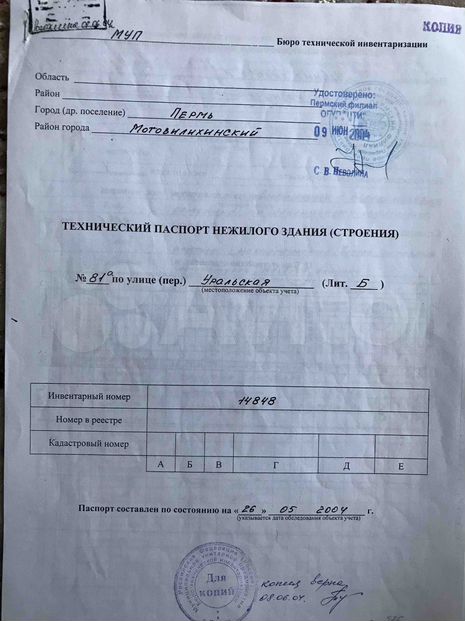 КОПИЯ
МУП Бюро технической инвентаризации
Область
Район
Город (др. поселение) Пермь
Район города Мотовилихинский
Удостоверено:
Пермский филиал
09 ИЮН 2004
С В Неволина
ТЕХНИЧЕСКИЙ ПАСПОРТ НЕЖИЛОГО ЗДАНИЯ (СТРОЕНИЯ)
№ 81а по улице (пер.) Уральская (Лит. Б )
(местоположение объекта учета)
Инвентарный номер 14848
Номер в реестре
Кадастровый номер
А Б В Г Д Е
Паспорт составлен по состоянию на « 26 » 05 2004 г.
(указывается дата обследования объекта учета)
Для
копий
копия верна
08.06.04.